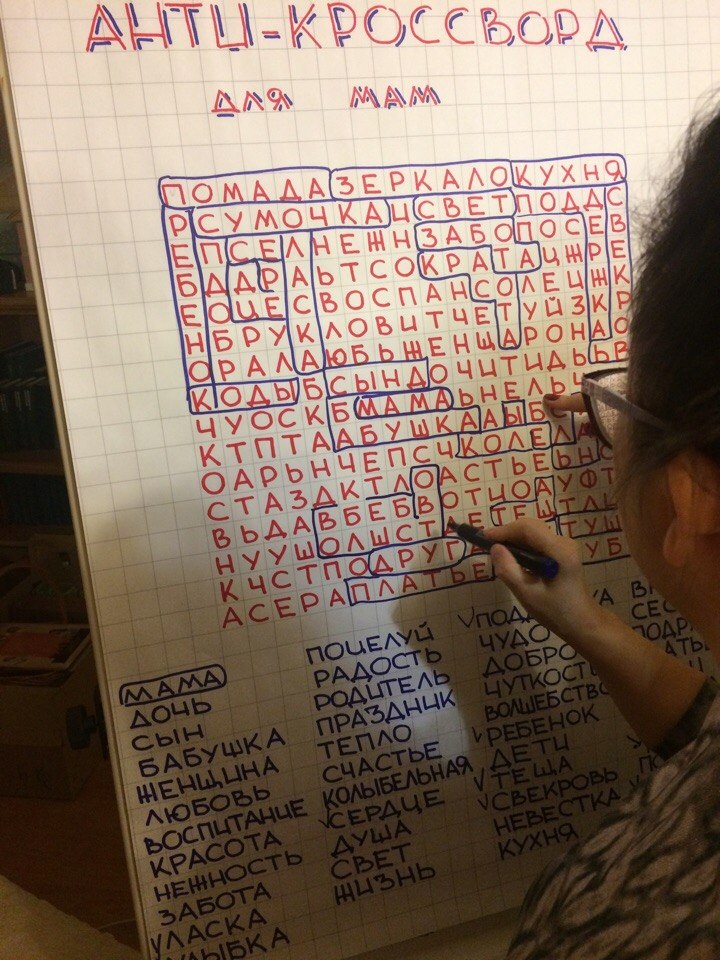 АНТИ-КРОССВОРД
ДЛЯ МАМ
ПОМАДАЗЕРКАЛОКУХНЯ
РСУМОЧКАИСВЕТПОДДС
ЕПСЕЛНЕЖНЗАБОПОСЕВ
БАДРАЬТСОКРАТАИЖРЕ
ЕОЦЕСВОСПАНСОЛЕИЖК
НБРУКЛОВИТЧЕТУЙЗКР
ОРАЛАЮБЬЖЕНЩАРОНАО
КОДЫБСЫНДОЧИТИДЬЬВ
ЧУОСКБМАМАЬНЕЛЬ
КТПТААБУШКААЫБ
ОАРЬНЧЕПСЧКОЛЕ
СТАЗДКТЛОАСТЬЕЬН
ВЬДАВБЕБВОТИОАУФТ
НУУШОЛШСТАЕТЕШТЛ
КЧСТПОДРУГА УБ
АСЕРАПЛАТЬЕ
МАМА
ДОЧЬ
СЫН
БАБУШКА
ЖЕНЩИНА
ЛЮБОВЬ
ВОСПИТАНИЕ
КРАСОТА
НЕЖНОСТЬ
ЗАБОТА
ЛАСКА
УЛЫБКА
ПОЦЕЛУЙ
РАДОСТЬ
РОДИТЕЛЬ
ПРАЗДНИК
ТЕПЛО
СЧАСТЬЕ
КОЛЫБЕЛЬНАЯ
СЕРДЦЕ
ДУША
СВЕТ
ЖИЗНЬ
ЧУДО
ДОБРО
ЧУТКОСТЬ
ВОЛШЕБСТВО
РЕБЕНОК
ДЕТИ
ТЕЩА
СВЕКРОВЬ
НЕВЕСТКА
КУХНЯ